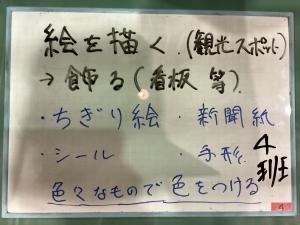 絵を描く.(観光スポット)
→飾る(看板 等).
・ちぎり絵 ・新聞紙
・シール ・手形.
色々なもので色をつける
4班
4